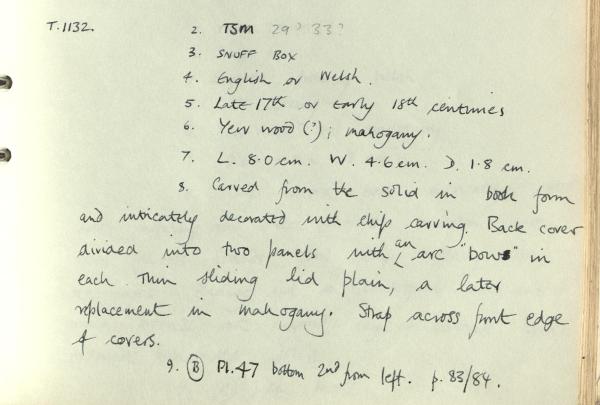 T.1132.
2. TSM 29? 33?
3. SNUFF BOX
4. English or Welsh.
5. Late 17th or Early 18th centuries
6. Yew wood (?); mahogany.
7. L. 8.0 cm. W. 4.6 cm. D. 1.8 cm.
8. Carved from the solid in book form
and intricately decorated with chip carving. Back cover
divided into two panels with an arc "bows" in
each. Thin sliding lid plain, a later
replacement in mahogany. Strap across front edge
of covers.
9. (B) Pl. 47 bottom 2nd from left. p. 83/84.